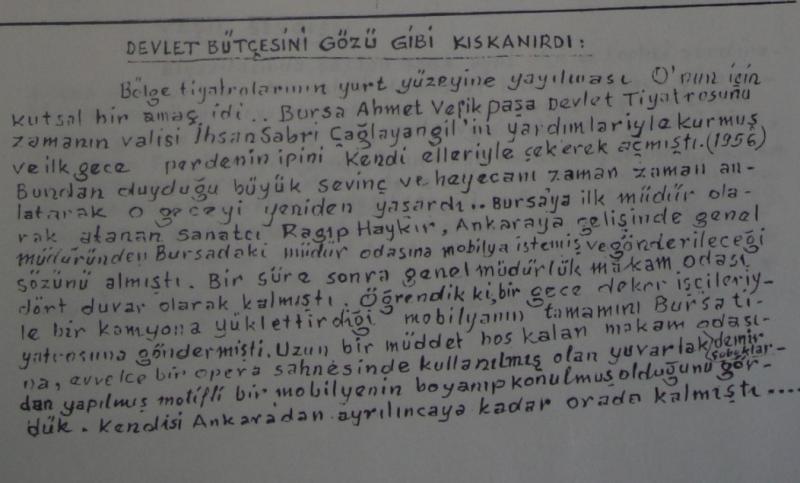 DEVLET BÜTÇESİNİ GÖZÜ GİBİ KISKANIRDI:
Bölge tiyatrolarının yurt yüzeyine yayılması O'nun için
kutsal bir amaç idi.. Bursa Ahmet Vefik paşa Devlet Tiyatrosunu
zamanın valisi İhsan Sabri Çağlayangil'in yardımlariyle kurmuş
ve ilk gece perdenin ipini kendi elleriyle çekerek açmıştı.(1956)
Bundan duyduğu büyük sevinç ve heyecanı zaman zaman an-
latarak o geceyi yeniden yaşardı.. Bursa'ya ilk müdür ola-
rak atanan sanatcı Ragıp Haykır, Ankaraya gelişinde genel
müdüründen Bursadaki müdür odasına mobilya istemiş ve gönderileceği
sözünü almıştı. Bir süre sonra genel müdürlük makam odası
dört duvar olarak kalmıştı. Öğrendik ki, bir gece dekor işçileriy-
le bir kamyona yüklettirdiği mobilyanın tamamını Bursa ti-
yatrosuna göndermişti. Uzun bir müddet boş kalan makam odası-
na, evvelce bir opera sahnesinde kullanılmış olan yuvarlak demir
çubuklar-
dan yapılmış motifli bir mobilyenin boyanıp konulmuş olduğunu gör-
dük. Kendisi Ankaradan ayrılıncaya kadar orada kalmıştı....